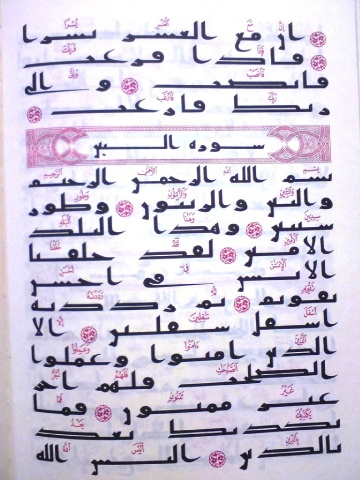 ان مع العسر يسرا
فاذا فرغت
فانصب والى
ربك فارغب
سورة التين
بسم الله الرحمن الرحيم
والتين والزيتون وطور
سينين وهذا البلد
الامين لقد خلقنا
الانسن في احسن
تقويم ثم رددنه
اسفل سفلين الا
الذين امنوا وعملوا
الصلحت فلهم اجر
غير ممنون فما
يكذبك بعد
بالدين اليس الله